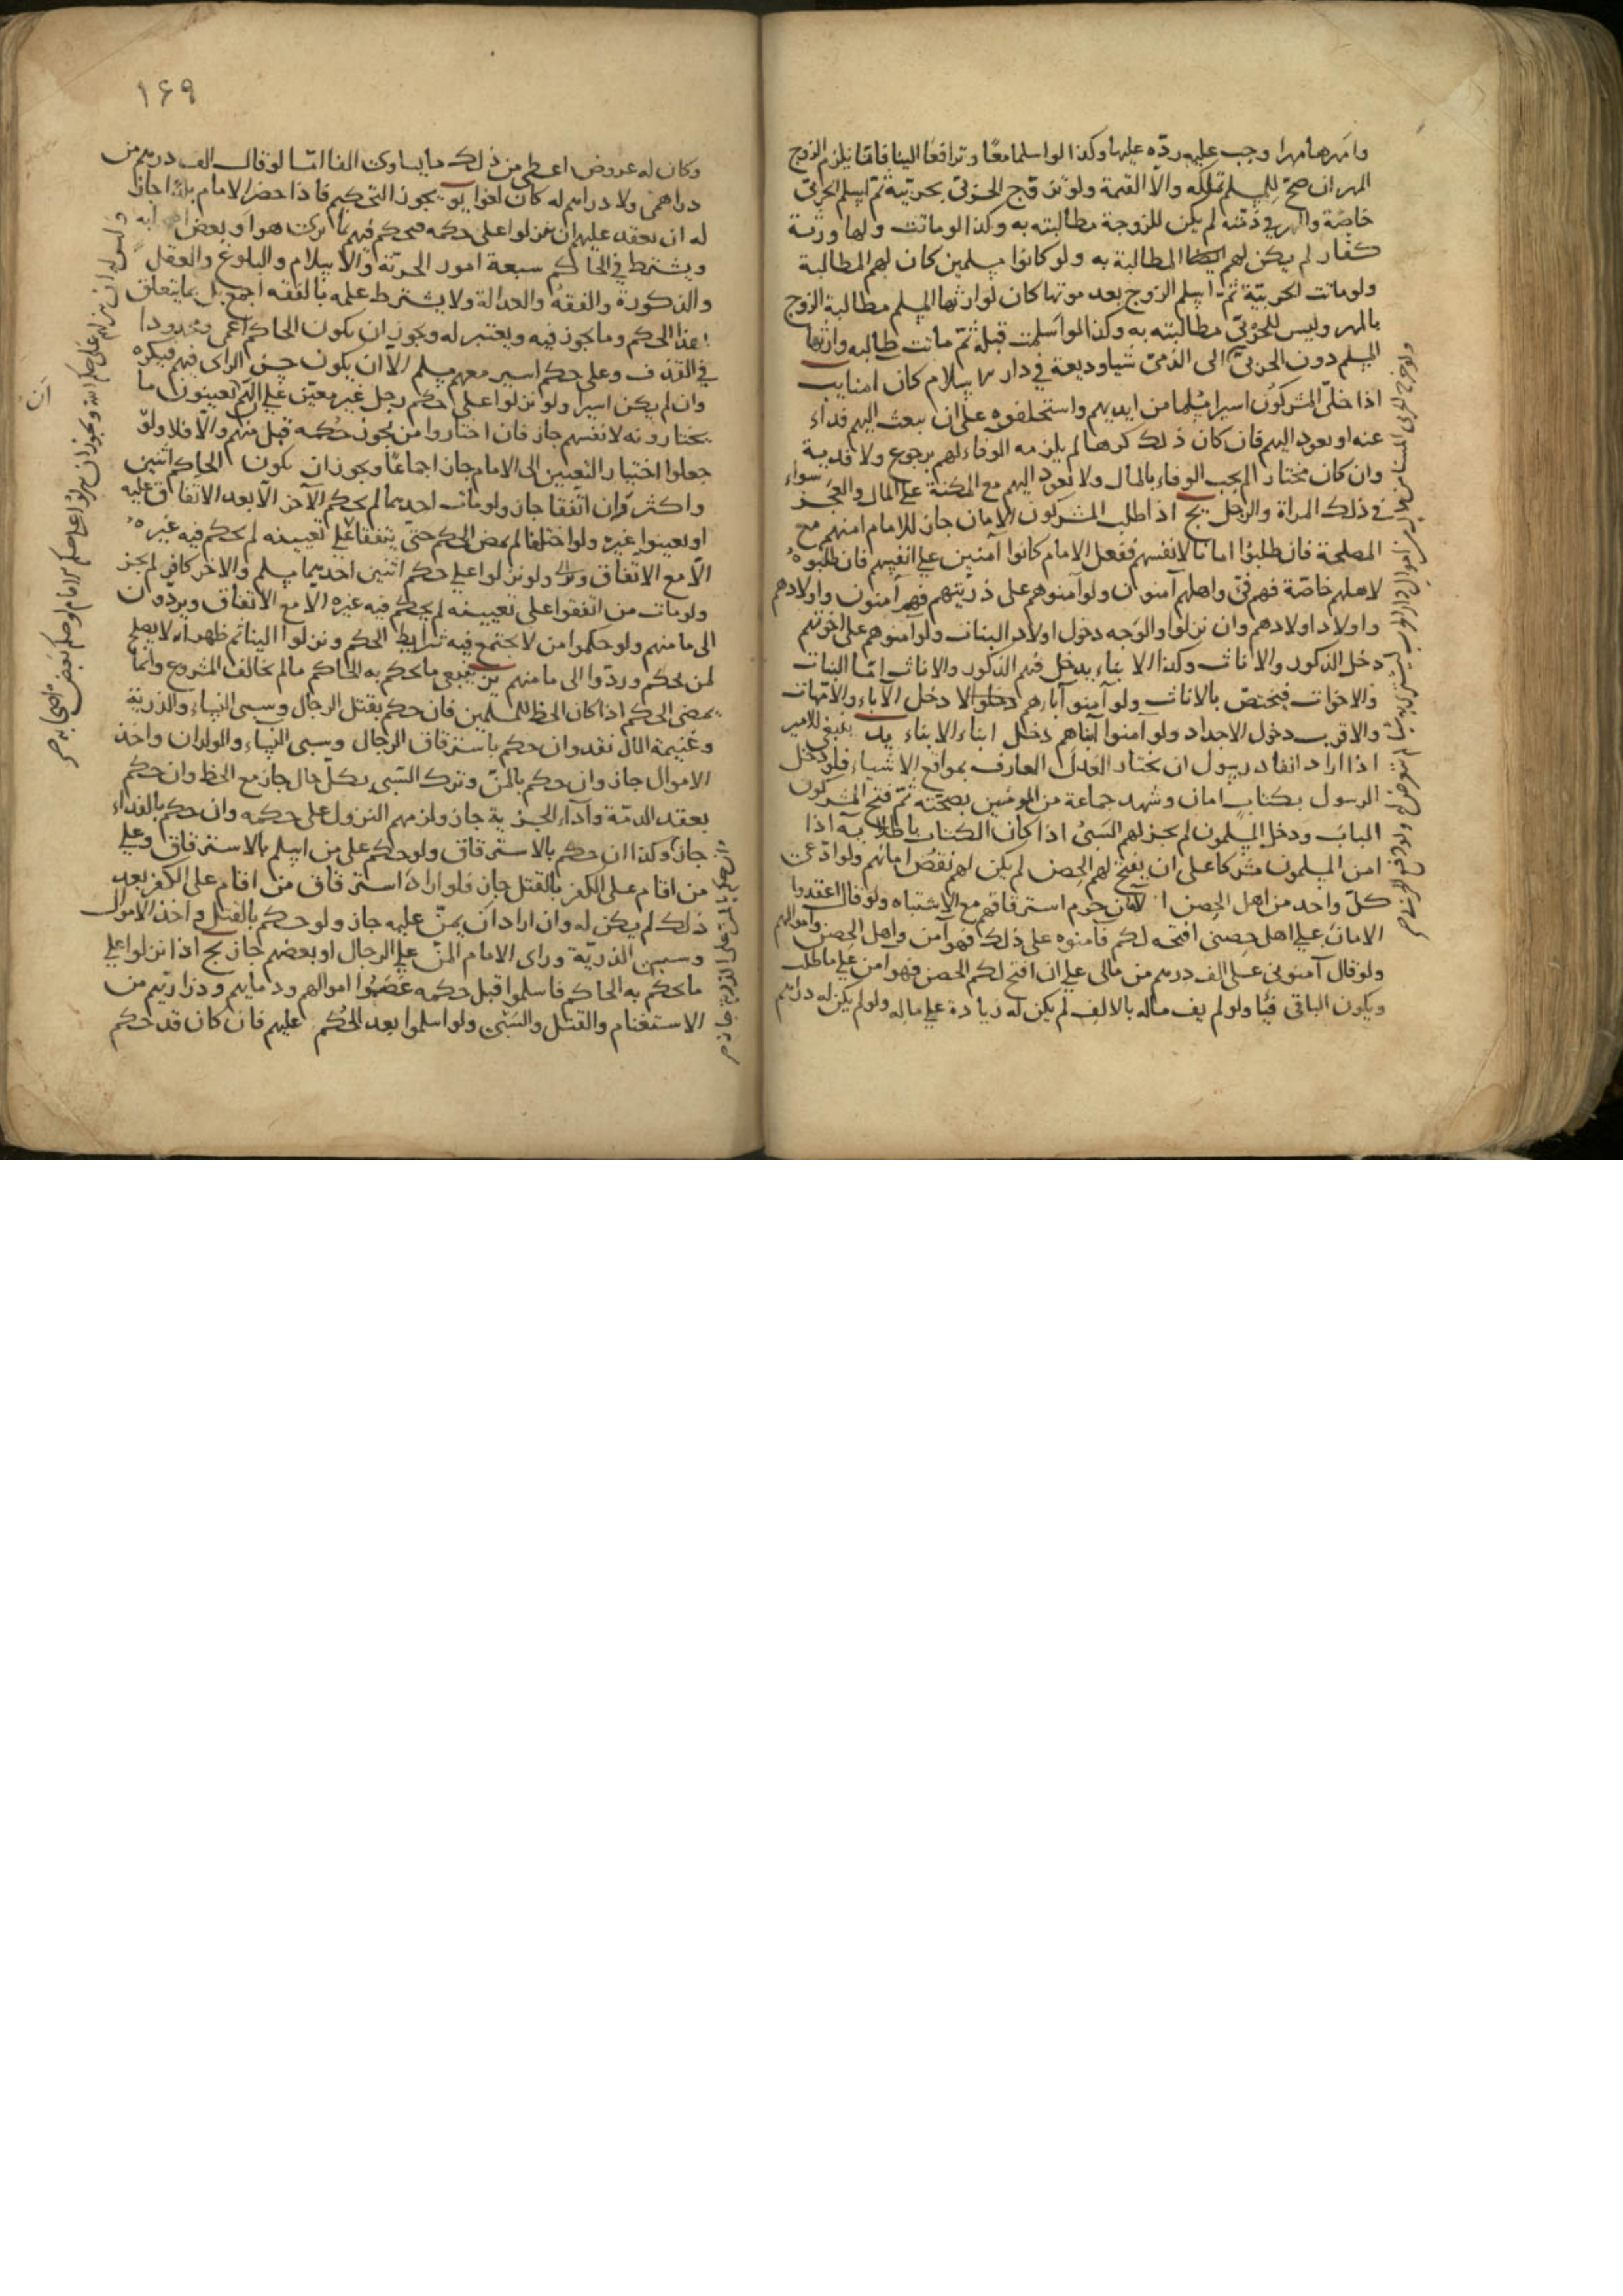 وامهرها مهرا وجب عليه ردّه عليها وكذا لو اسلما معًا وترافعا الينا فانّا نلزم الزوج
المهر ان صحّ للمسلم تملكه والّا القيمة ولو تزوّج الحربيّ بحربيّة ثمّ اسلم الحربيّ
خاصّة والمهر في ذمّته لم يكن للزوجة مطالبته به وكذا لو ماتت ولها ورثة
كفّار لم يكن لهم المطالبة به ولو كانوا مسلمين كان لهم المطالبة
ولو ماتت الحربيّة ثمّ اسلم الزوج بعد موتها كان لوارثها المسلم مطالبة الزوج
بالمهر وليس للحربيّ مطالبته به وكذا لو اسلمت قبله ثمّ ماتت طالبه وارثها
المسلم دون الحربيّ
اذا خلّى المشركون اسيرا مسلما من ايديهم واستحلفوه على ان يبعث اليهم فداء
عنه او يعود اليهم فان كان ذلك كرها لم يلزمه الوفاء لهم برجوع ولا فدية
وان كان مختارا لم يجب الوفاء بالمال ولا يعود اليهم مع المكنة على المال والعجز سواء
في ذلك المراة والرجل يج اذا طلب المشركون الامان جاز للامام امنهم مع
المصلحة فان طلبوا امانا لانفسهم ففعل الامام كانوا آمنين على انفسهم فان طلبوه
لاهلهم خاصّة فهم فئ واهلهم آمنون ولو آمنوهم على ذريّتهم فهم آمنون واولادهم
واولاد اولادهم وان نزلوا والوجه دخول اولاد البنات ولو آمنوهم على اخوتهم
دخل الذكور والاناث وكذا الابناء يدخل فيهم الذكور والاناث امّا البنات
والاخوات فيختصّ بالاناث ولو آمنو آبارهم دخل الآباء والامّهات
والاقرب دخول الاجداد ولو آمنوا آبناهم دخل ابناء الابناء يد ينبغي للامير
اذا اراد انفاد رسول ان يختار العدل العارف بمواقع الاشياء فلو دخل
الرسول بكتاب امان وشهد جماعة من المومنين بصحّته ثمّ فتح المشركون
الباب ودخل المسلمون لم يجز لهم السبى اذا كان الكتاب باطلا يه اذا
امن المسلمون مشركا على ان يفتح لهم الحصن لم يكن لهم نقض امانهم ولو ادّعى
كلّ واحد من اهل الحصن انه الامان حرم استرقاقهم مع الاشتباه ولو قال اعقدوا
الامان على اهل حصنى افتحه لكم فآمنوه على ذلك فهو آمن واهل الحصن واموالهم
ولو قال آمنونى على الف درهم من مالى على ان افتح لكم الحصن فهو امن على ما طلب
ويكون الباقى فيًا ولو لم يف ماله بالالف لم يكن له زيادة على ماله ولو لم يكن له دراهم
١٤٩
وكان له عروض اعطى من ذلك ما يساوى الفا امّا لو قال الف درهم من
دراهمى ولا دراهم له كان لغوا يو يجوز التحكيم فاذا حضر الامام بلدًا جاز
له ان يعقد عليهم ان ينزلوا على حكمه فيحكم فيهم بما يرى هو او بعض اصحابه
ويشترط في الحاكم سبعة امور الحريّة والاسلام والبلوغ والعقل
والذكورة والفقه والعدالة ولا يشترط علمه بالفقه اجمع بل بما يتعلق
بهذا الحكم وما يجوز فيه ويعتبر له ويجوز ان يكون الحاكم اعمى ومحدودا
في القذف وعلى حكم اسير معهم مسلم الّا ان يكون حسن الراى فيهم فيكره
وان لم يكن اسيرا ولو نزلوا على حكم رجل غير معيّن على انّهم يعينون ما
يختارونه لانفسهم جاز فان اختاروا من يجوز حكمه قبل منهم والّا فلا ولو
جعلوا اختيار التعيين الى الامام جاز اجماعًا ويجوز ان يكون الحاكم اثنين
واكثر فان اتّفقا جاز ولو مات احدهما لم يحكم الآخر الّا بعد الاتفاق عليه
او يعينوا غيره ولو اختلفا لم يمض الحكم حتى يتفقا على تعيينه لم يحكم فيه غيره
الّا مع الاتّفاق ولو نزلوا على حكم اثنين احدهما مسلم والاخر كافر لم يجز
ولو مات من اتفقوا على تعيينه لم يحكم فيه غيره الّا مع الاتفاق ويردّون
الى ما منهم ولو حكموا من لا يجتمع فيه شرايط الحكم ونزلوا الينا ثم ظهر انه لا يصلح
لمن يحكم وردّوا الى ما منهم يز يتبع ما يحكم به الحاكم ما لم يخالف المشروع وانّما
يمضى الحكم اذا كان الحظ للمسلمين فان حكم بقتل الرجال وسبى النساء والذرية
وغنيمة المال نفذ وان حكم باسترقاق الرجال وسبى النساء والولدان واخذ
الاموال جاز وان حكم بالمنّ وترك السّبى بكلّ حال جاز مع الحظ وان حكم
بعقد الذمّة وآداء الجزية جاز ولزمهم النزول على حكمه وان حكم بالفداء
جاز وكذا ان حكم بالاسترقاق ولو حكم على من اسلم بالاسترقاق وعلى
من اقام على الكفر بالقتل جاز فلو اراد استرقاق من اقام على الكفر بعد
ذلك لم يكن له وان اراد ان يمنّ عليه جاز ولو حكم بالقتل واخذ الاموال
وسبى الذريّة وراى الامام المنّ على الرجال او بعضهم جاز يح اذا نزلوا على
ما يحكم به الحاكم فاسلموا قبل حكمه عصموا اموالهم ودمايهم وذراريهم من
الاستغنام والقتل والسّبى ولو اسلموا بعد الحكم عليهم فان كان قد حكم